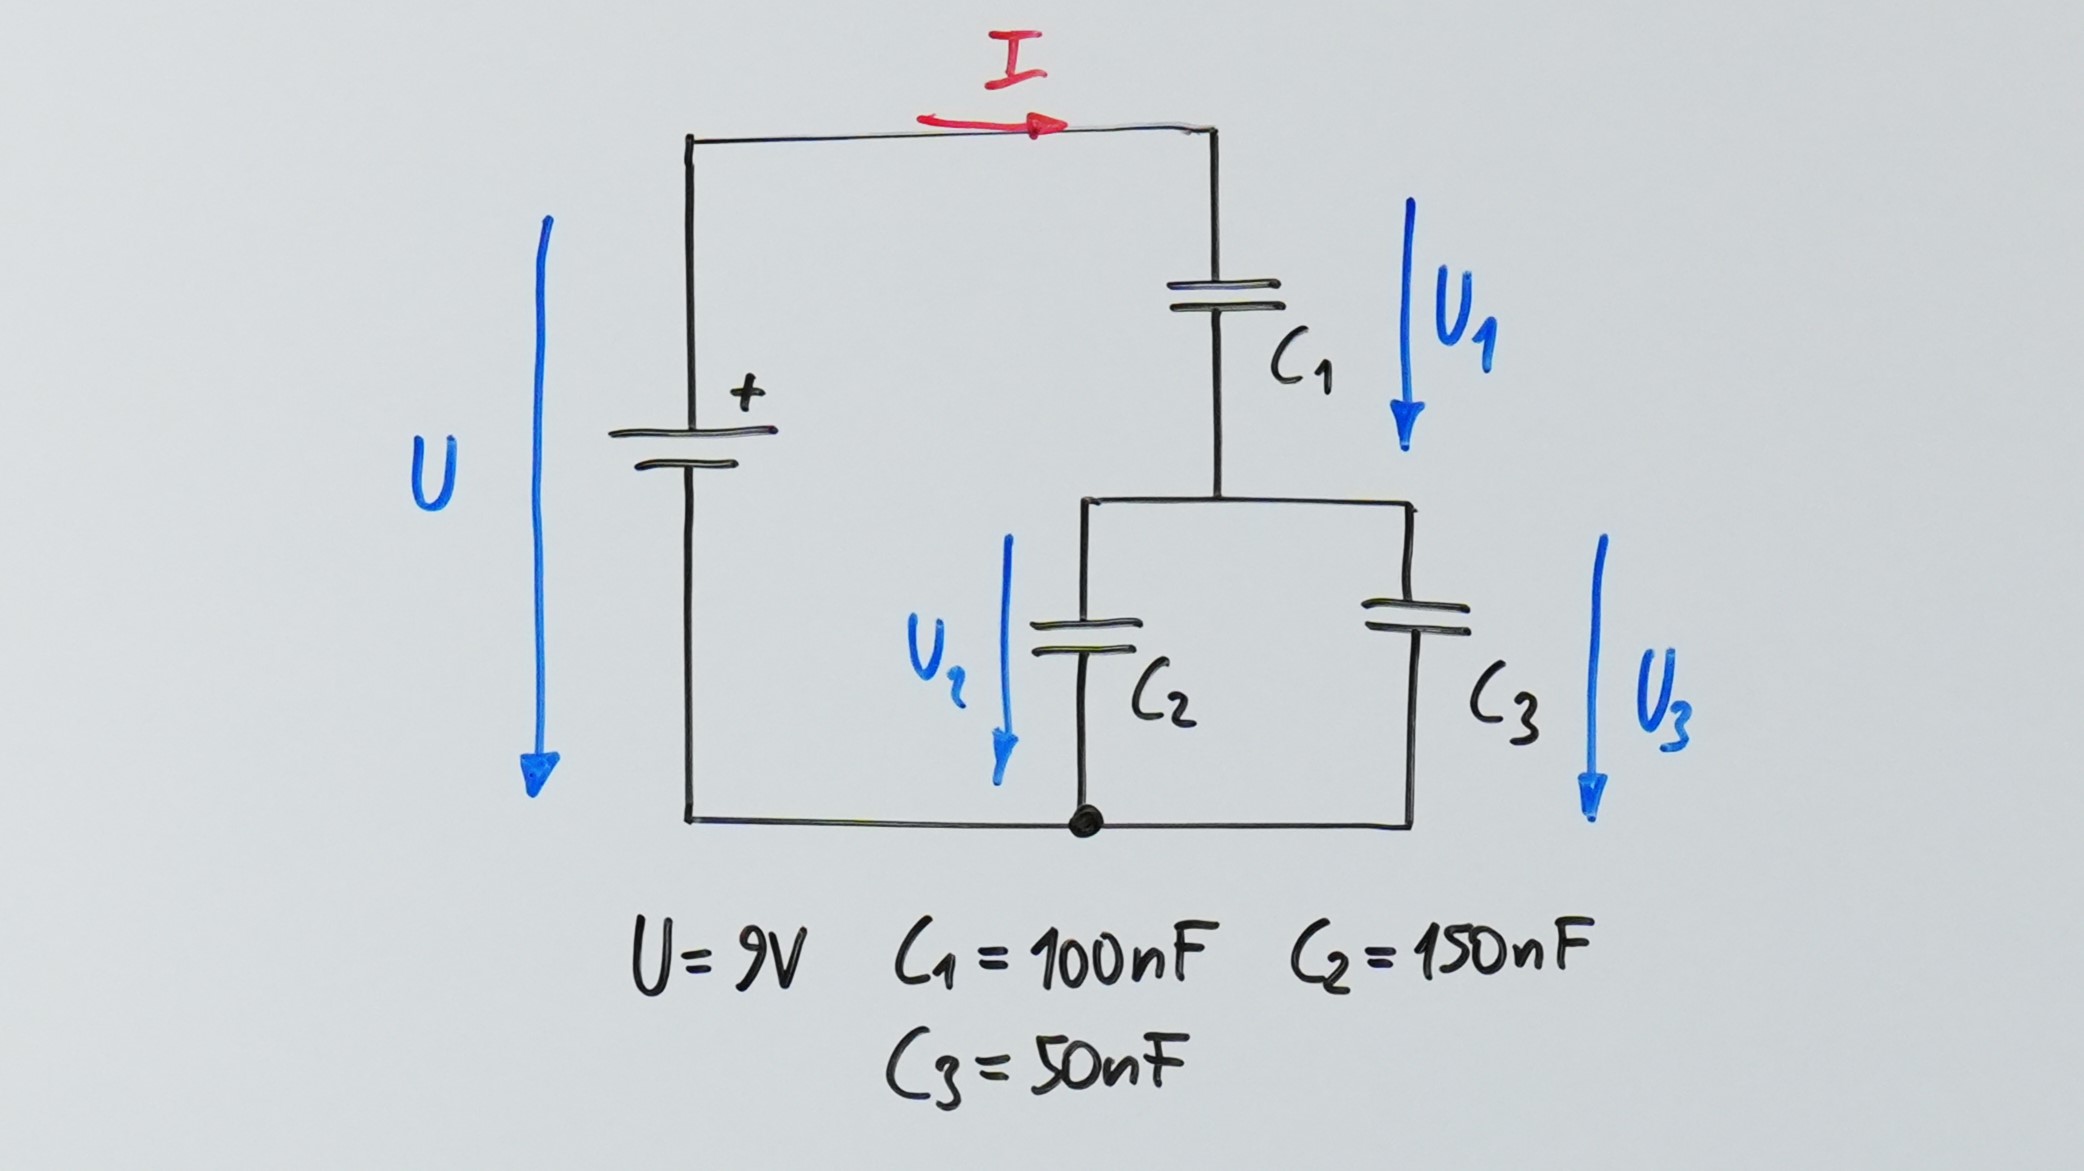 I
+
U
U₁
C₁
U₂
C₂
C₃
U₃
U = 9V C₁ = 100nF C₂ = 150nF
C₃ = 50nF